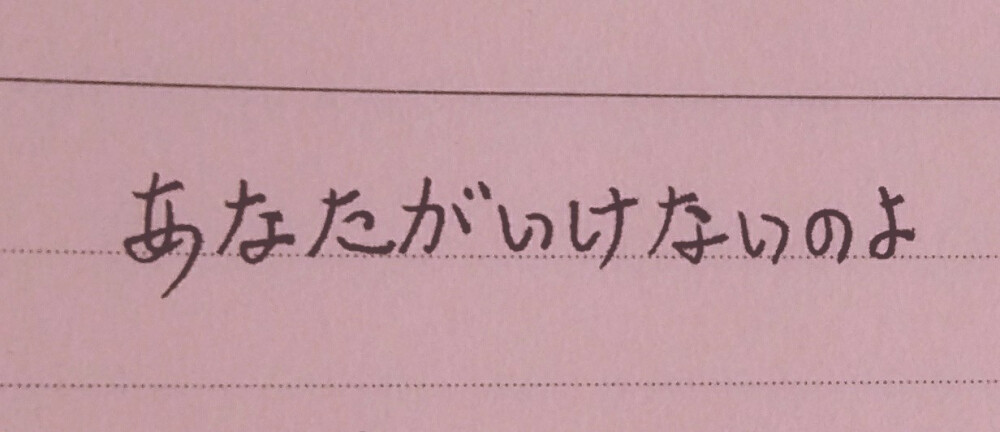 あなたがいけないのよ